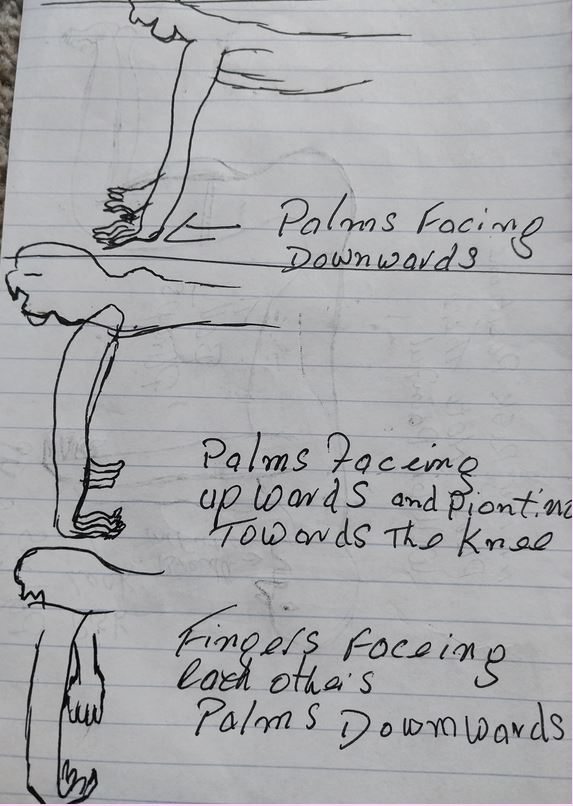 Palms Facing
Downwards
Palms Faceing
upwards and Piontin
Towards The Knee
Fingers Faceing
Each other's
Palms Downwards